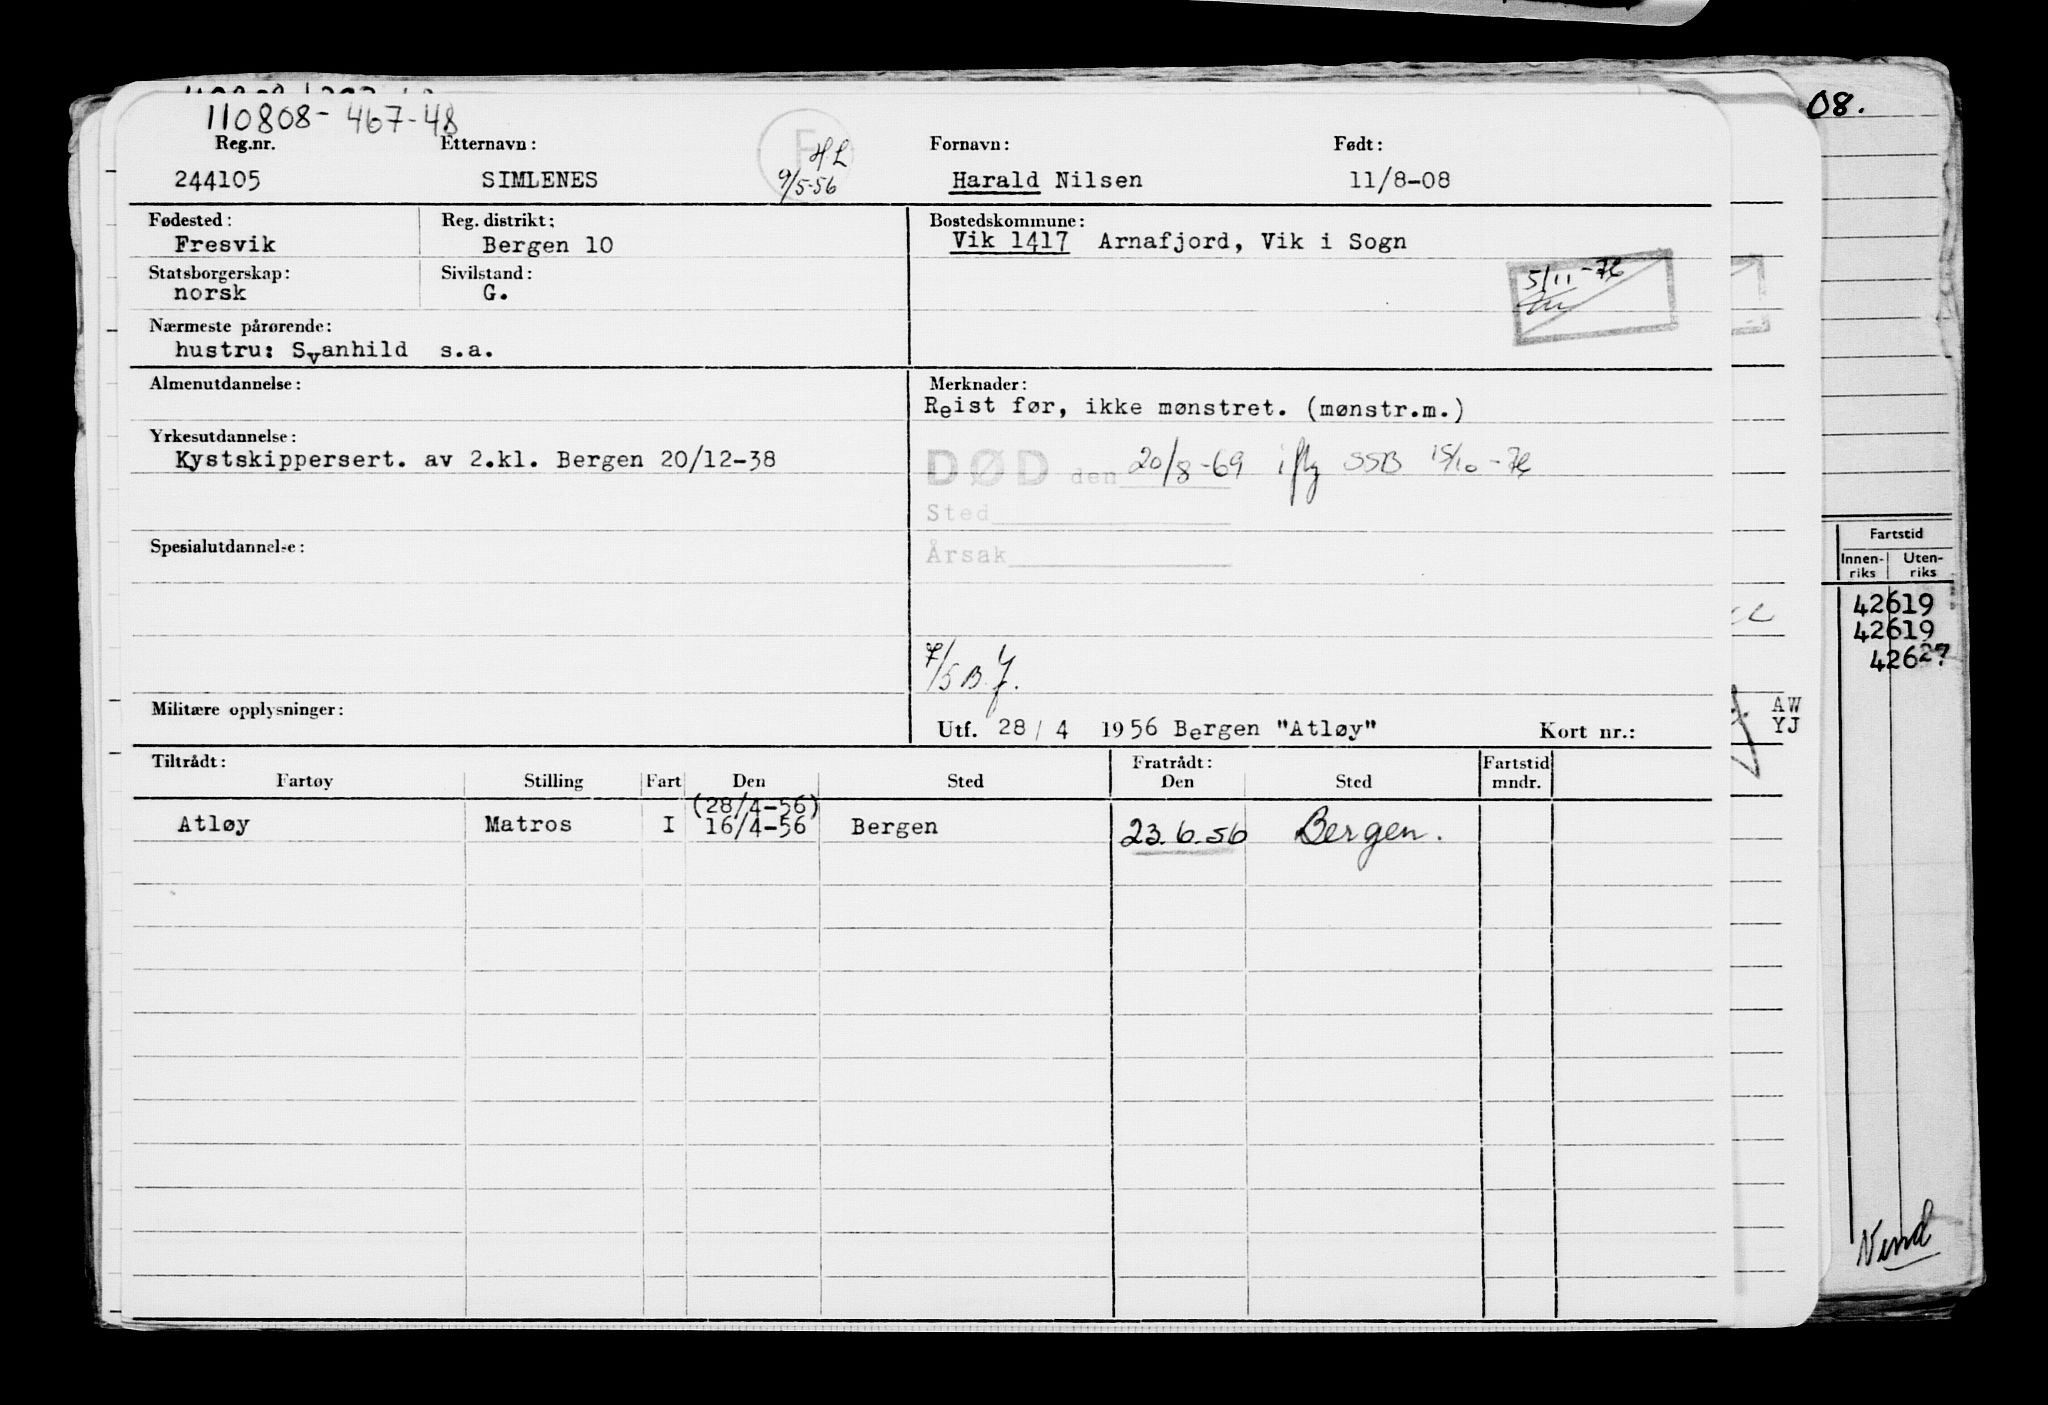 110808-467-48
Reg.nr. Etternavn: Fornavn: Født:
HL
244105 SIMLENES 9/5-56 Harald Nilsen 11/8-08
Fødested: Reg. distrikt: Bostedskommune:
Fresvik Bergen 10 Vik 1417 Arnafjord, Vik i Sogn
Statsborgerskap: Sivilstand:
norsk G.
5/11-76
Nærmeste pårørende:
hustru: Svanhild s.a.
Almenutdannelse: Merknader:
Reist før, ikke mønstret. (mønstr.m.)
Yrkesutdannelse:
Kystskippersert. av 2.kl. Bergen 20/12-38
DØD den 20/8-69 iflg SSB 15/10-76
Sted
Spesialutdannelse:
Årsak
7/5 B.J.
Militære opplysninger:
Utf. 28/4 1956 Bergen "Atløy" Kort nr.:
Tiltrådt: Fratrådt: Fartstid
Fartøy Stilling Fart Den Sted Den Sted mndr.
(28/4-56)
Atløy Matros I 16/4-56 Bergen 23.6.56 Bergen.
08.
Fartstid
Innen-riks Uten-riks
42619
42619
42627
AW
YJ